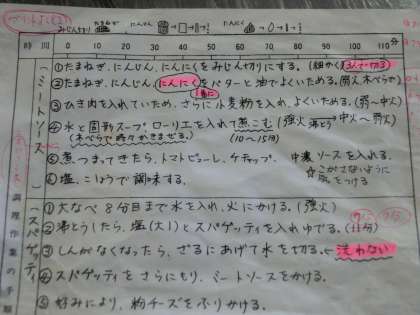 みじん切り たまねぎ にんじん にんにく
時間
0 10 20 30 40 50 60 70 80 90 100 110分
調理作業の手順
(ミートソース)
①たまねぎ、にんじん、にんにくをみじん切りにする。(細かく
②たまねぎ、にんじん、にんにくをバターと油でよくいためる。
③ひき肉を入れていため、さらに小麦粉を入れ、よくいためる。(弱〜中火)
④水と固形スープ、ローリエを入れて煮こむ(強火 沸とう 中火〜弱火)
(木べらで時々かきまぜる。) (10〜15分)
⑤煮つまってきたら、トマトピューレ、ケチャップ、中濃ソースを入れる。
☆こがさないように
気をつける
⑥塩、こしょうで調味する。
(スパゲッティ)
①大なべ8分目まで水を入れ、火にかける。(強火)
②沸とうしたら、塩(大1)とスパゲッティを入れゆでる。
③しんがなくなったら、ざるにあげて水を切る。←洗わない
④スパゲッティをさらにもり、ミートソースをかける。
⑤好みにより、粉チーズをふりかける。